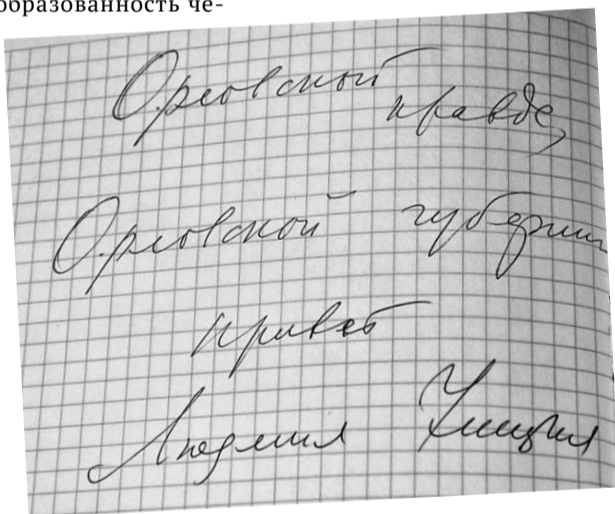 образованность че-
Орловской
правде,
Орловской губернии
привет
Людмила Улицкая